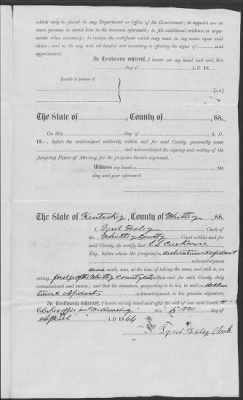 which may be found in any Department or Office of the Government; to appoint one or
more persons to avoid him in the business aforesaid; to file additional evidence or argu-
ments when necessary; to receive the certificate which may issue in my name upon said
claim; and to do any and all lawful acts necessary to effecting the object of said
appointment.
In Testimony whereof, I have set my hand and seal this
day of A.D. 18
[L.S.]
The State of , County of , ss.
On this day of A.D.
18 , before the undersigned authority within and for said County, personally came
and acknowledged the signing and sealing of the
foregoing Power of Attorney, for the purpose therein expressed.
Witness my hand
day and year aforesaid.
The State of Kentucky, County of Whitley, ss.
I, Clerk of
the Whitley County Court within and for
said County, do certify that
before whom the foregoing declaration & affidavit
acknowledgment
were made was, at the time of taking the same, and still is, an
acting Judge of the Whitley County Court within and for said County, duly
commissioned and sworn; and that the signature, purporting to be his, to said
& affidavit acknowledgment is his genuine signature.
In Testimony whereof, I have set my hand and affixed the seal of our said Court at
Clerks office in Williamsburg this
April A.D. 1866
Clerk